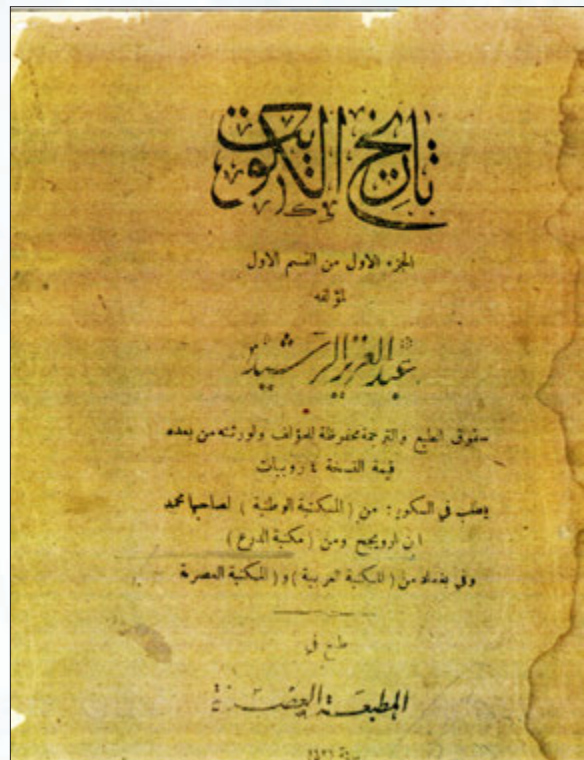 تاريخ الكويت
الجزء الاول من القسم الاول
لمؤلفه
عبد العزيز الرشيد
حقوق الطبع والترجمة محفوظة للمؤلف ولورثته من بعده
قيمة النسخة ٤ روبيات
يطلب في الكويت: من (المكتبة الوطنية) لصاحبها محمد
ومن (مكتبة)
وفي بغداد من (المكتبة العربية) و (المكتبة العصرية
طبع في
المطبعة العصرية
سنة